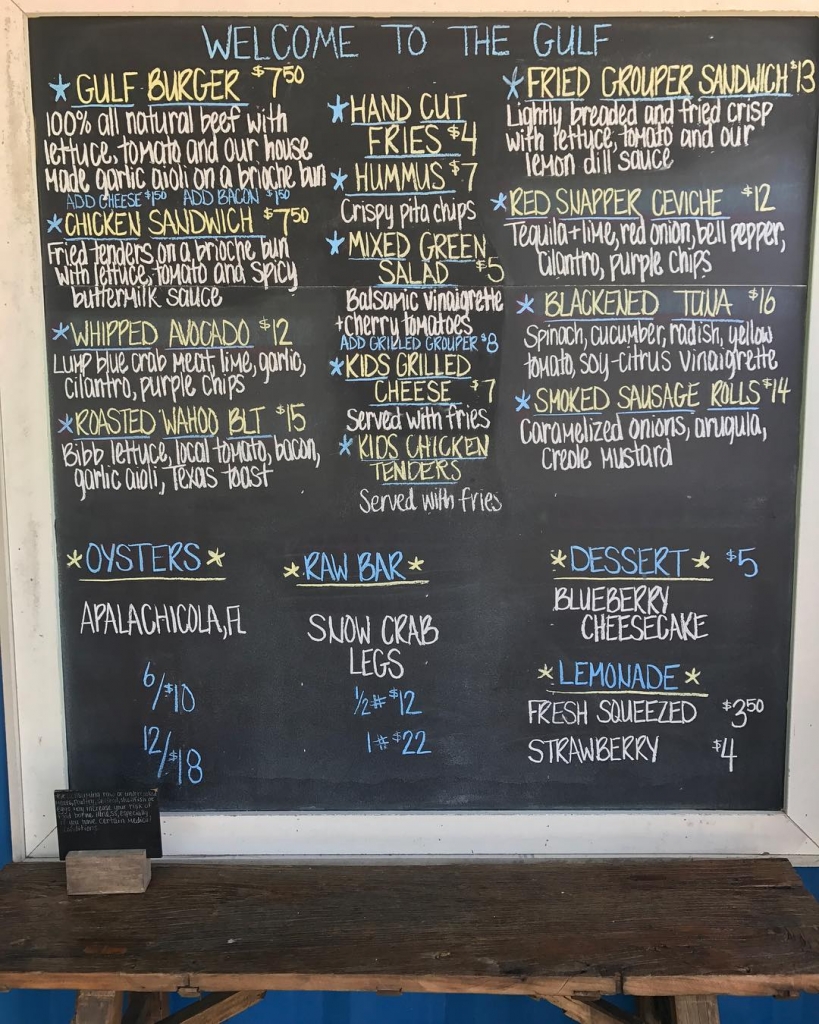 WELCOME TO THE GULF
GULF BURGER $7.50
100% all natural beef with
lettuce, tomato and our house
made garlic aioli on a brioche bun
ADD CHEESE $1.50 ADD BACON $1.50
CHICKEN SANDWICH $7.50
Fried tenders on a brioche bun
with lettuce, tomato and spicy
buttermilk sauce
WHIPPED AVOCADO $12
Lump blue crab meat, lime, garlic,
cilantro, purple chips
ROASTED WAHOO BLT $15
Bibb lettuce, local tomato, bacon,
garlic aioli, Texas toast
HAND CUT
FRIES $4
HUMMUS $7
Crispy pita chips
MIXED GREEN
SALAD $5
Balsamic vinaigrette
+cherry tomatoes
ADD GRILLED GROUPER $8
KIDS GRILLED
CHEESE $7
served with fries
KIDS CHICKEN
TENDERS
Served with fries
FRIED GROUPER SANDWICH $13
Lightly breaded and fried crisp
with lettuce, tomato and our
lemon dill sauce
RED SNAPPER CEVICHE $12
Tequila+lime, red onion, bell pepper,
cilantro, purple chips
BLACKENED TUNA $16
Spinach, cucumber, radish, yellow
tomato, soy-citrus vinaigrette
SMOKED SAUSAGE ROLLS $14
Caramelized onions, arugula,
creole mustard
OYSTERS
APALACHICOLA, FL
6/$10
12/$18
RAW BAR
SNOW CRAB
LEGS
1/2# $12
1# $22
DESSERT $5
BLUEBERRY
CHEESECAKE
LEMONADE
FRESH SQUEEZED $3.50
STRAWBERRY $4